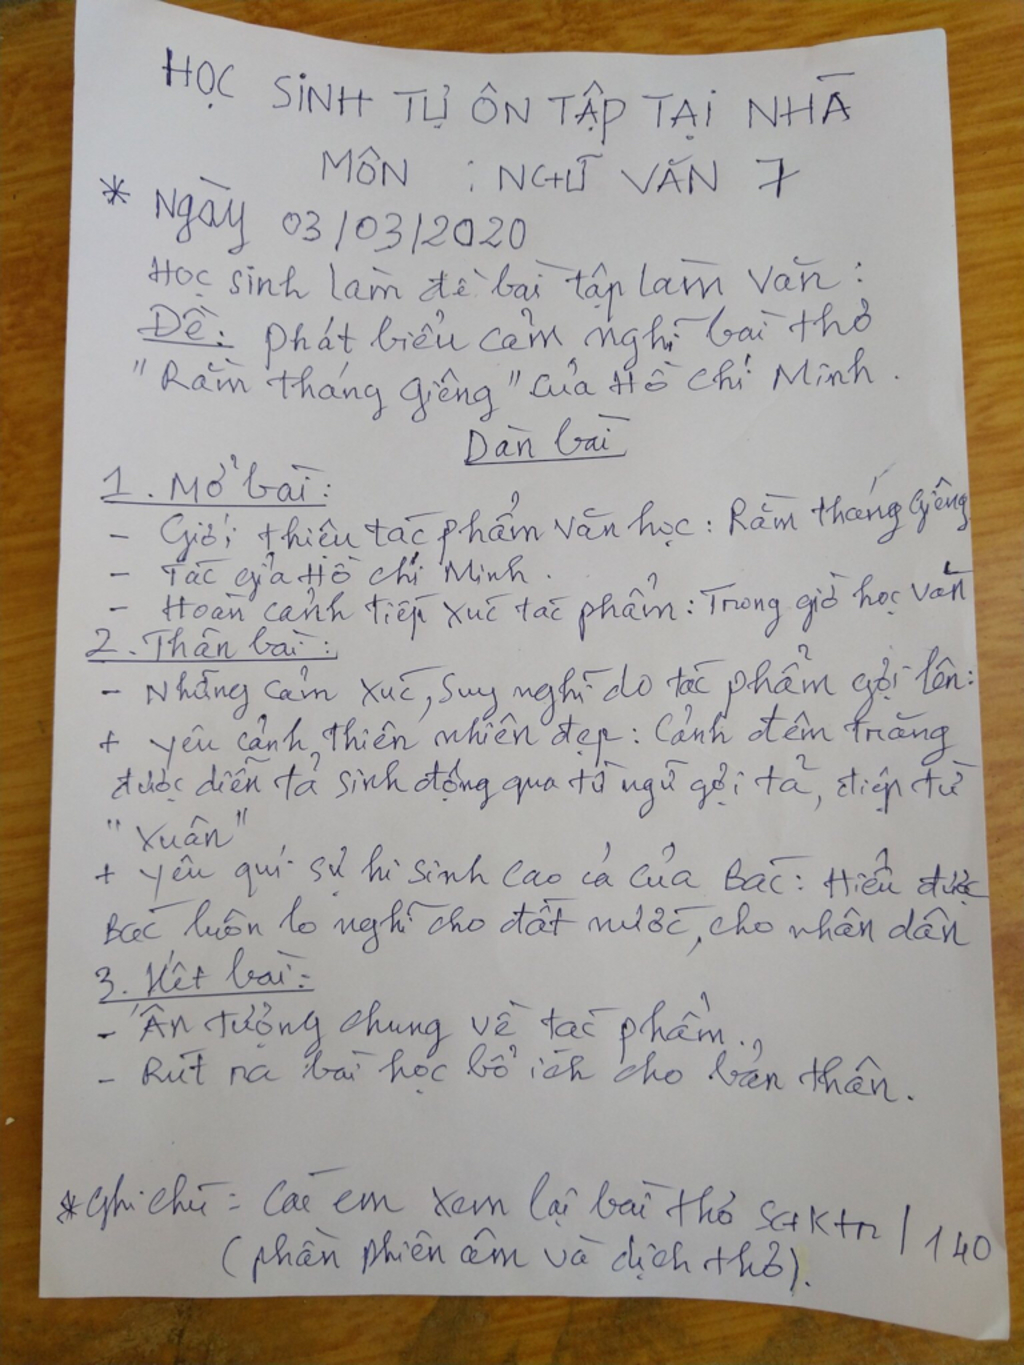 HỌC SINH TỰ ÔN TẬP TẠI NHÀ
MÔN : NGỮ VĂN 7
* Ngày 03/03/2020
Học sinh làm đề bài tập làm văn:
Đề: Phát biểu cảm nghĩ bài thơ
"Rằm tháng Giêng" của Hồ Chí Minh.
Dàn bài
1. Mở bài:
- Giới thiệu tác phẩm văn học: Rằm tháng Giêng
- Tác giả Hồ Chí Minh.
- Hoàn cảnh tiếp xúc tác phẩm: Trong giờ học văn
2. Thân bài:
- Những cảm xúc, suy nghĩ do tác phẩm gợi lên:
+ yêu cảnh thiên nhiên đẹp: Cảnh đêm trăng
được diễn tả sinh động qua từ ngữ gợi tả, điệp từ
"xuân"
+ yêu quí sự hi sinh cao cả của Bác: Hiểu được
Bác luôn lo nghĩ cho đất nước, cho nhân dân
3. Kết bài:
- Ấn tượng chung về tác phẩm.
- Rút ra bài học bổ ích cho bản thân.
* Ghi chú: Các em xem lại bài thơ SGK tr / 140
(phần phiên âm và dịch thơ).